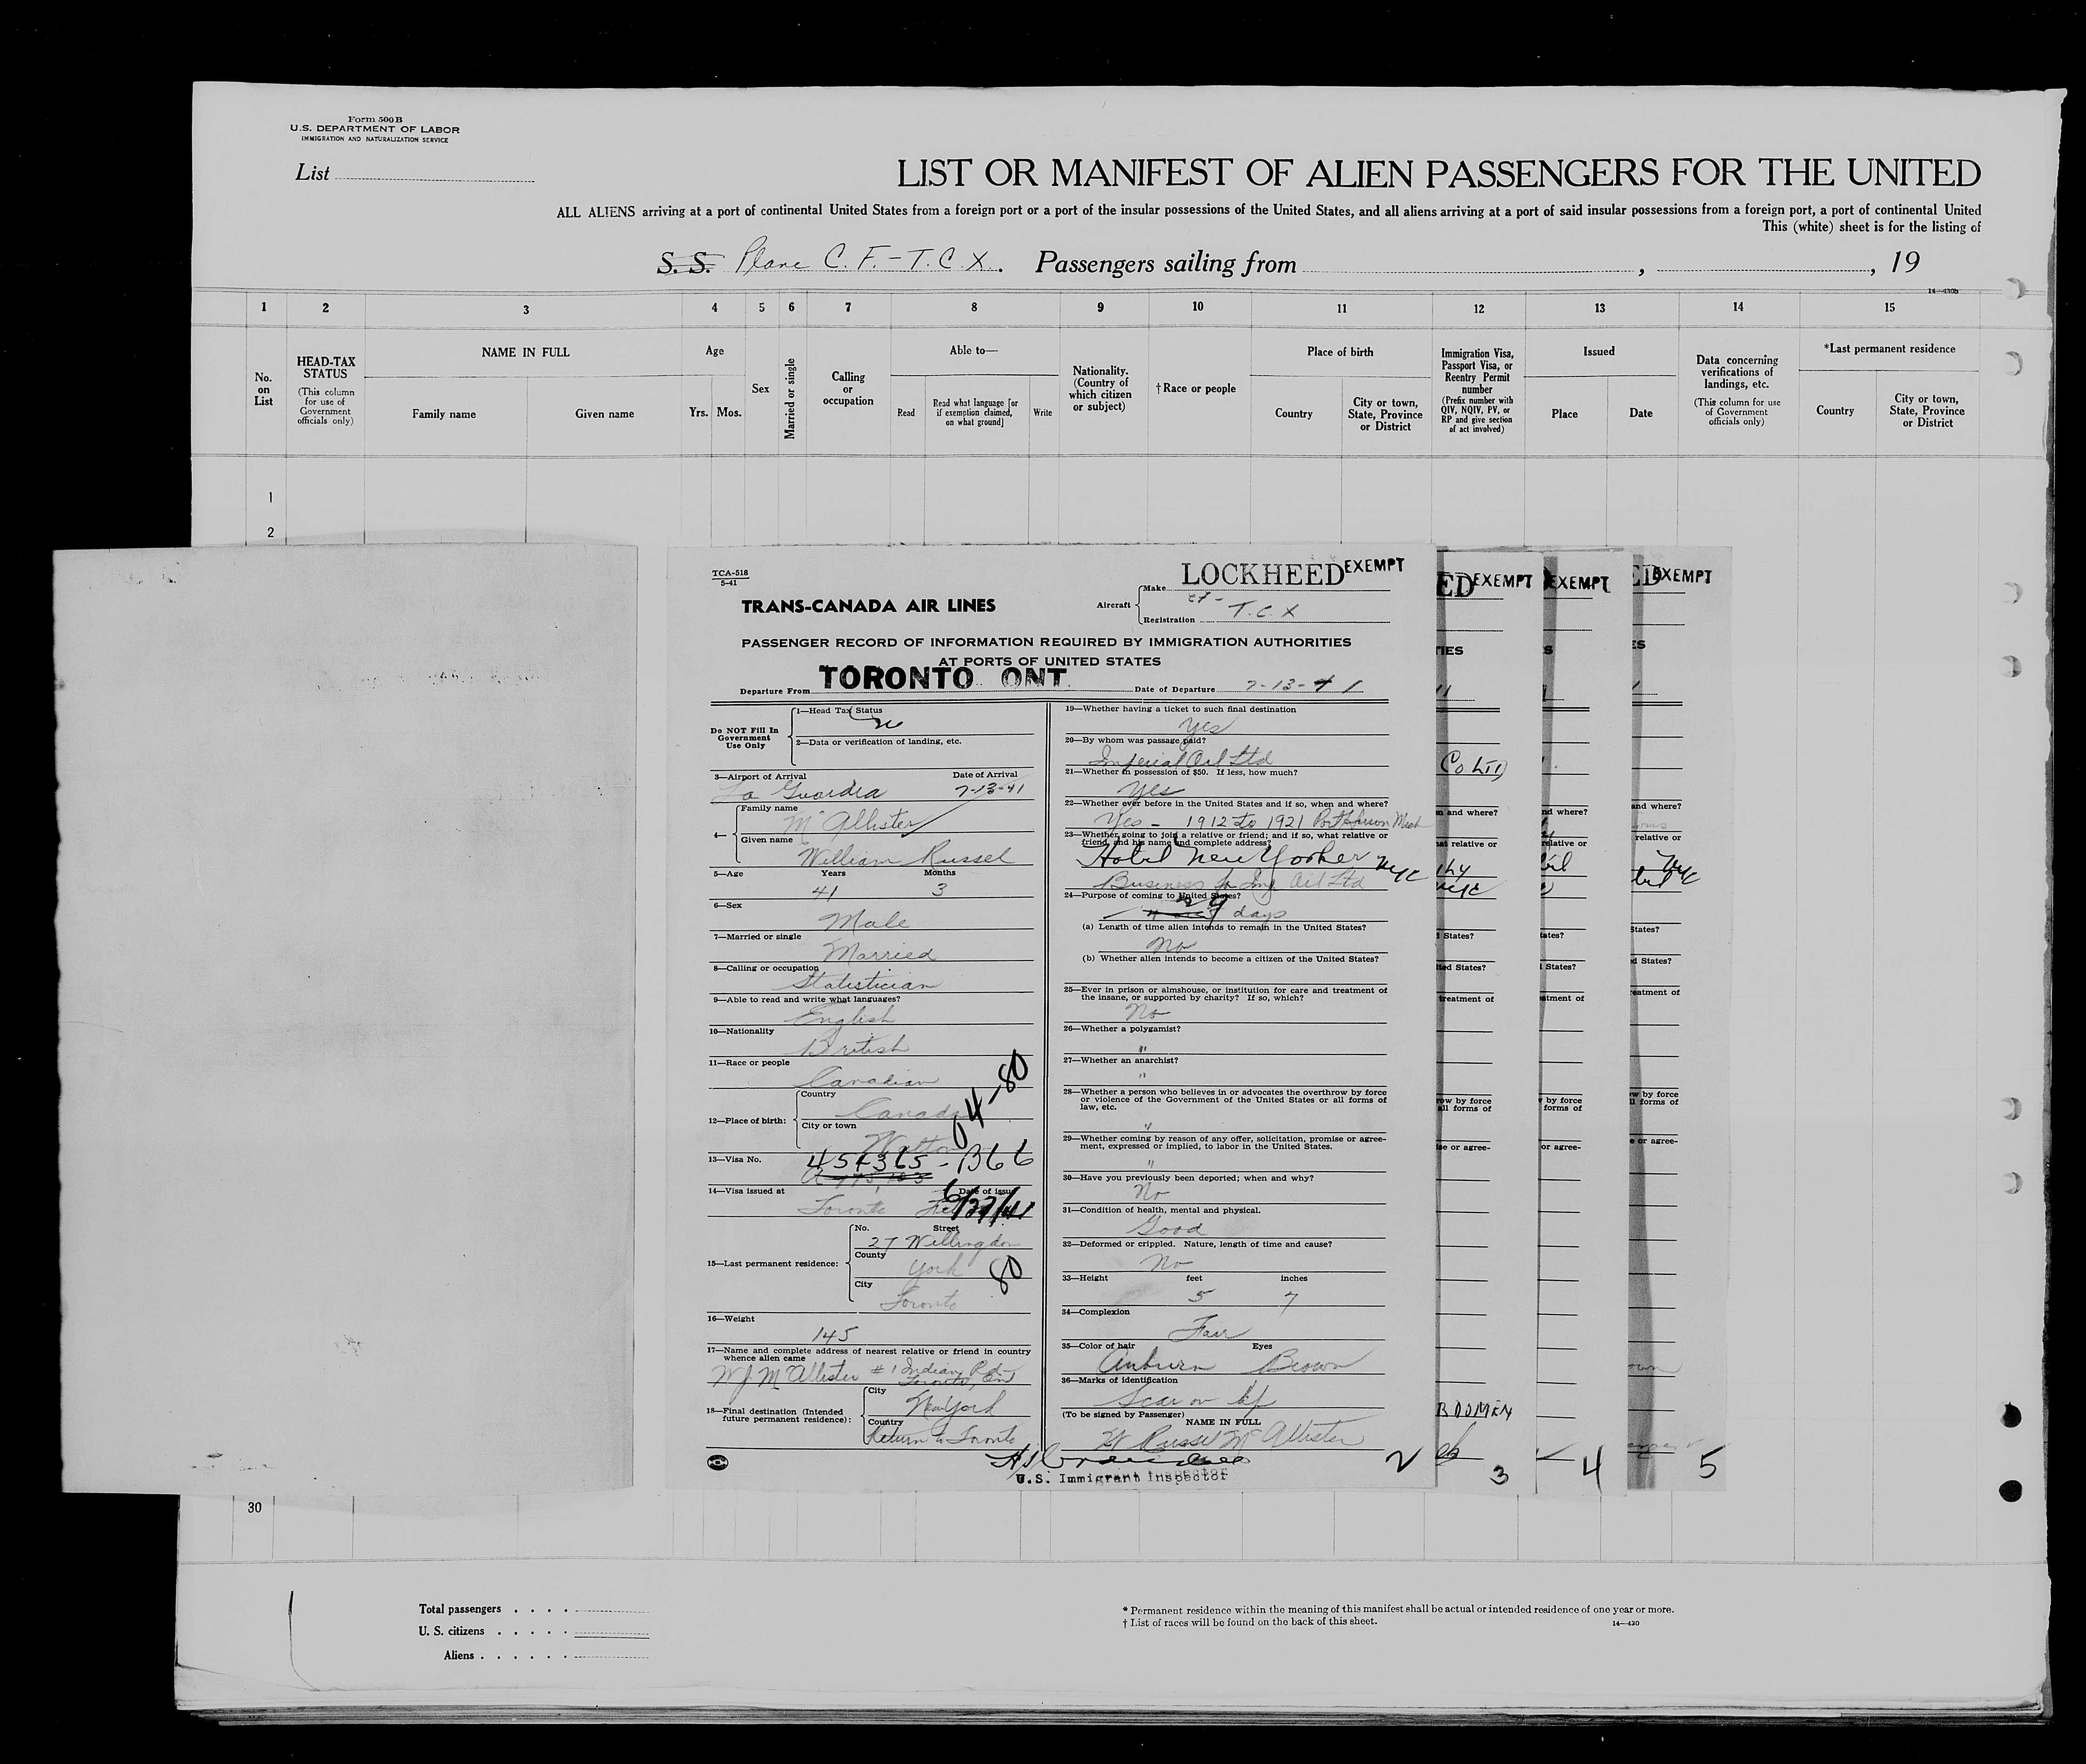 Form 500 B
U.S. DEPARTMENT OF LABOR
IMMIGRATION AND NATURALIZATION SERVICE
List
LIST OR MANIFEST OF ALIEN PASSENGERS FOR THE UNITED
ALL ALIENS arriving at a port of continental United States from a foreign port or a port of the insular possessions of the United States, and all aliens arriving at a port of said insular possessions from a foreign port, a port of continental United
This (white) sheet is for the listing of
S. S. Plane C. F. - T. C. X. Passengers sailing from , , 19
14—430b
1 2 3 4 5 6 7 8 9 10 11 12 13 14 15
No. on List
HEAD-TAX STATUS (This column for use of Government officials only)
NAME IN FULL
Family name
Given name
Age
Yrs. Mos.
Sex
Married or single
Calling or occupation
Able to—
Read
Read what language [or if exemption claimed, on what ground]
Write
Nationality. (Country of which citizen or subject)
† Race or people
Place of birth
Country
City or town, State, Province or District
Immigration Visa, Passport Visa, or Reentry Permit number (Prefix number with QIV, NQIV, PV, or RP and give section of act involved)
Issued
Place
Date
Data concerning verifications of landings, etc. (This column for use of Government officials only)
*Last permanent residence
Country
City or town, State, Province or District
1
2
TCA-518
5-41
TRANS-CANADA AIR LINES
Aircraft
Make LOCKHEED EXEMPT
Registration CF- T.C.X
PASSENGER RECORD OF INFORMATION REQUIRED BY IMMIGRATION AUTHORITIES
AT PORTS OF UNITED STATES
Departure From TORONTO ONT. Date of Departure 7-13-41
Do NOT Fill In Government Use Only
1—Head Tax Status
2—Data or verification of landing, etc.
3—Airport of Arrival Date of Arrival
La Guardia 7-13-41
4—
Family name
McAllister
Given name
William Russel
5—Age Years Months
41 3
6—Sex
Male
7—Married or single
Married
8—Calling or occupation
Statistician
9—Able to read and write what languages?
English
10—Nationality
British
11—Race or people
Canadian
04-80
12—Place of birth:
Country
Canada
City or town
13—Visa No.
454365 - B66
14—Visa issued at Date of issue
Toronto 6/27/41
15—Last permanent residence:
No. Street
27 Willingdon
County
York 80
City
Toronto
16—Weight
145
17—Name and complete address of nearest relative or friend in country whence alien came
W J McAllister #1 Indian Rd
Toronto, On
18—Final destination (Intended future permanent residence):
City
New York
Country
Return to Toronto
19—Whether having a ticket to such final destination
Yes
20—By whom was passage paid?
Imperial Oil Ltd
21—Whether in possession of $50. If less, how much?
Yes
22—Whether ever before in the United States and if so, when and where?
Yes - 1912 to 1921 Port Huron Mich
23—Whether going to join a relative or friend; and if so, what relative or friend and his name and complete address?
Hotel New Yorker NYC
Business for Imp Oil Ltd
24—Purpose of coming to United States?
29 days
(a) Length of time alien intends to remain in the United States?
No
(b) Whether alien intends to become a citizen of the United States?
25—Ever in prison or almshouse, or institution for care and treatment of the insane, or supported by charity? If so, which?
No
26—Whether a polygamist?
"
27—Whether an anarchist?
"
28—Whether a person who believes in or advocates the overthrow by force or violence of the Government of the United States or all forms of law, etc.
"
29—Whether coming by reason of any offer, solicitation, promise or agreement, expressed or implied, to labor in the United States.
"
30—Have you previously been deported; when and why?
No
31—Condition of health, mental and physical.
Good
32—Deformed or crippled. Nature, length of time and cause?
No
33—Height feet inches
5 7
34—Complexion
Fair
35—Color of hair Eyes
Auburn Brown
36—Marks of identification
Scar on lip
(To be signed by Passenger)
NAME IN FULL
W Russel McAllister
U.S. Immigrant Inspector
2
ED EXEMPT
EXEMPT
ED EXEMPT
Co LTD
NYC
3
4
5
30
Total passengers
U. S. citizens
Aliens
* Permanent residence within the meaning of this manifest shall be actual or intended residence of one year or more.
† List of races will be found on the back of this sheet.
14—430